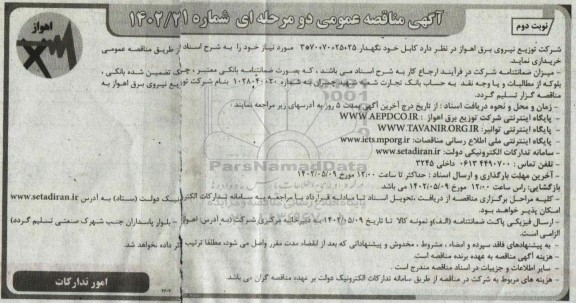 نوبت دوم
آگهی مناقصه عمومی دو مرحله ای شماره ۱۴۰۲/۲۱
اهواز
شرکت توزیع نیروی برق اهواز در نظر دارد کابل خود نگهدار ۲۵+۲۵+۷۰+۳۵۷۰ مورد نیاز خود را به شرح اسناد از طریق مناقصه عمومی
خریداری نماید.
- میزان ضمانتنامه شرکت در فرآیند ارجاع کار به شرح اسناد می باشد ، که بصورت ضمانتنامه بانکی معتبر ، چک تضمین شده بانکی ،
بلوکه از مطالبات و یا وجه نقد به حساب بانک تجارت شعبه شهید چمران به شماره ۱۰۲۸۰۴۰۰۲۰ بنام شرکت توزیع نیروی برق اهواز به
مناقصه گزار تسلیم گردد.
- زمان و محل و نحوه دریافت اسناد : از تاریخ درج آخرین آگهی بمدت ۵ روز به آدرسهای زیر مراجعه نمایند :
- پایگاه اینترنتی شرکت توزیع برق اهواز : WWW.AEPDCO.IR
- پایگاه اینترنتی توانیر: WWW.TAVANIR.ORG.IR
- پایگاه اینترنتی ملی اطلاع رسانی مناقصات: www.iets.mporg.ir
- سامانه تدارکات الکترونیکی دولت: www.setadiran.ir
- تلفن تماس : ۴۴۹۰۷۰۰ ۰۶۱۳ داخلی ۳۲۴۵
- آخرین مهلت بارگذاری و ارسال اسناد : حداکثر تا ساعت ۱۲:۰۰ مورخ ۱۴۰۲/۰۵/۰۹
بازگشایی: راس ساعت ۱۲:۰۰ مورخ ۱۴۰۲/۰۵/۰۹ می باشد
- کلیه مراحل برگزاری مناقصه از دریافت ،تحویل اسناد تا مبادله قرارداد با مراجعه به سامانه تدارکات الکترونیک دولت (ستاد) به آدرس www.setadiran.ir
امکان پذیر خواهد بود.
- ارسال فیزیکی پاکت ضمانتنامه (الف)و نمونه کالا تا تاریخ ۱۴۰۲/۰۵/۰۹ به دبیرخانه مرکزی شرکت (به آدرس اهواز – بلوار پاسداران جنب شهرک صنعتی تسلیم گردد)
الزامی است.
- به پیشنهادهای فاقد سپرده و امضاء ، مشروط ، مخدوش و پیشنهاداتی که بعد از انقضاء مدت مقرر واصل می شوند، مطلقا ترتیب اثر داده نخواهد شد.
- هزینه آگهی مناقصه به عهده برنده مناقصه است.
- سایر اطلاعات و جزییات در اسناد مناقصه مندرج است.
- هزینه های مربوط به شرکت در مناقصه از طریق سامانه تدارکات الکترونیک دولت بر عهده مناقصه گران می باشد.
امور تدارکات
ParsNamadData